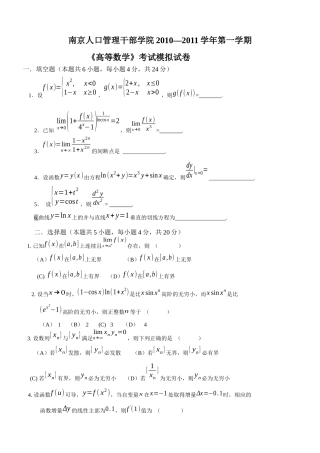 南京人口管理干部学院 2010—2011 学年第一学期
《高等数学》考试模拟试卷
一．填空题（本题共 6 小题，每小题 4 分，共 24 分）
1．设 f(x)={x², x≤0 1−x x≥0， g(x)={x, x<0 1−x x≥0，则 f[g(x)]=
2．已知 lim x→0 [1+ f(x)/(4^x−1)]^{1/(1−cosx)}=2，则 lim x→0 f(x)/x³ =
3． f(x)=lim n→∞ (1−x^{2n})/(1+x^{2n}) 的间断点是
4．设函数 y=y(x) 由方程 ln(x²+y)=x³y+sin x 确定，则 dy/dx|x=0 =
5．设 {x=1+t² y=cos t，则 d²y/dx² =
曲线 y=ln x 上的并与直线 x+y=1 垂直的切线方程为
二．选择题（本题共 5 小题，每小题 4 分，共 20 分）
1. 已知 f(x) 在 [a,b] 上连续且 lim f(x) 存在，则（ ）
（A）f(x) 在 [a,b] 上无界 （B）f(x) 在 [a,b] 上无界
(C) f(x) 在 [a,b] 上有界 （D）f(x) 在 [a,b] 上有界
2. 设当 x→0 时， (1−cos x)ln(1+x²) 是比 x sin xⁿ 高阶的无穷小，而 x sin xⁿ 是比
(e^{x²}−1) 高阶的无穷小，则正整数 n 等于（ ）
（A） 1 （B） 2 (C) 3 （D） 4
3. 设数列 {xₙ} 与 {yₙ} 满足 lim n→∞ xₙyₙ=0，则下列正确的是（ ）
（A）若 {xₙ} 发散，则 {yₙ} 必发散 （B）若 {xₙ} 无界，则 {yₙ} 必有界
(C) 若 {xₙ} 有界，则 yₙ 必为无穷小 （D）若 {1/xₙ} 为无穷小，则 yₙ 必为无穷小
4. 设函数 f(u) 可导， y=f(x²)，当自变量 x 在 x=−1 处取得增量 Δx=−0.1 时，相应的
函数增量 Δy 的线性主部为 0.1，则 f(1) 值为（ ）